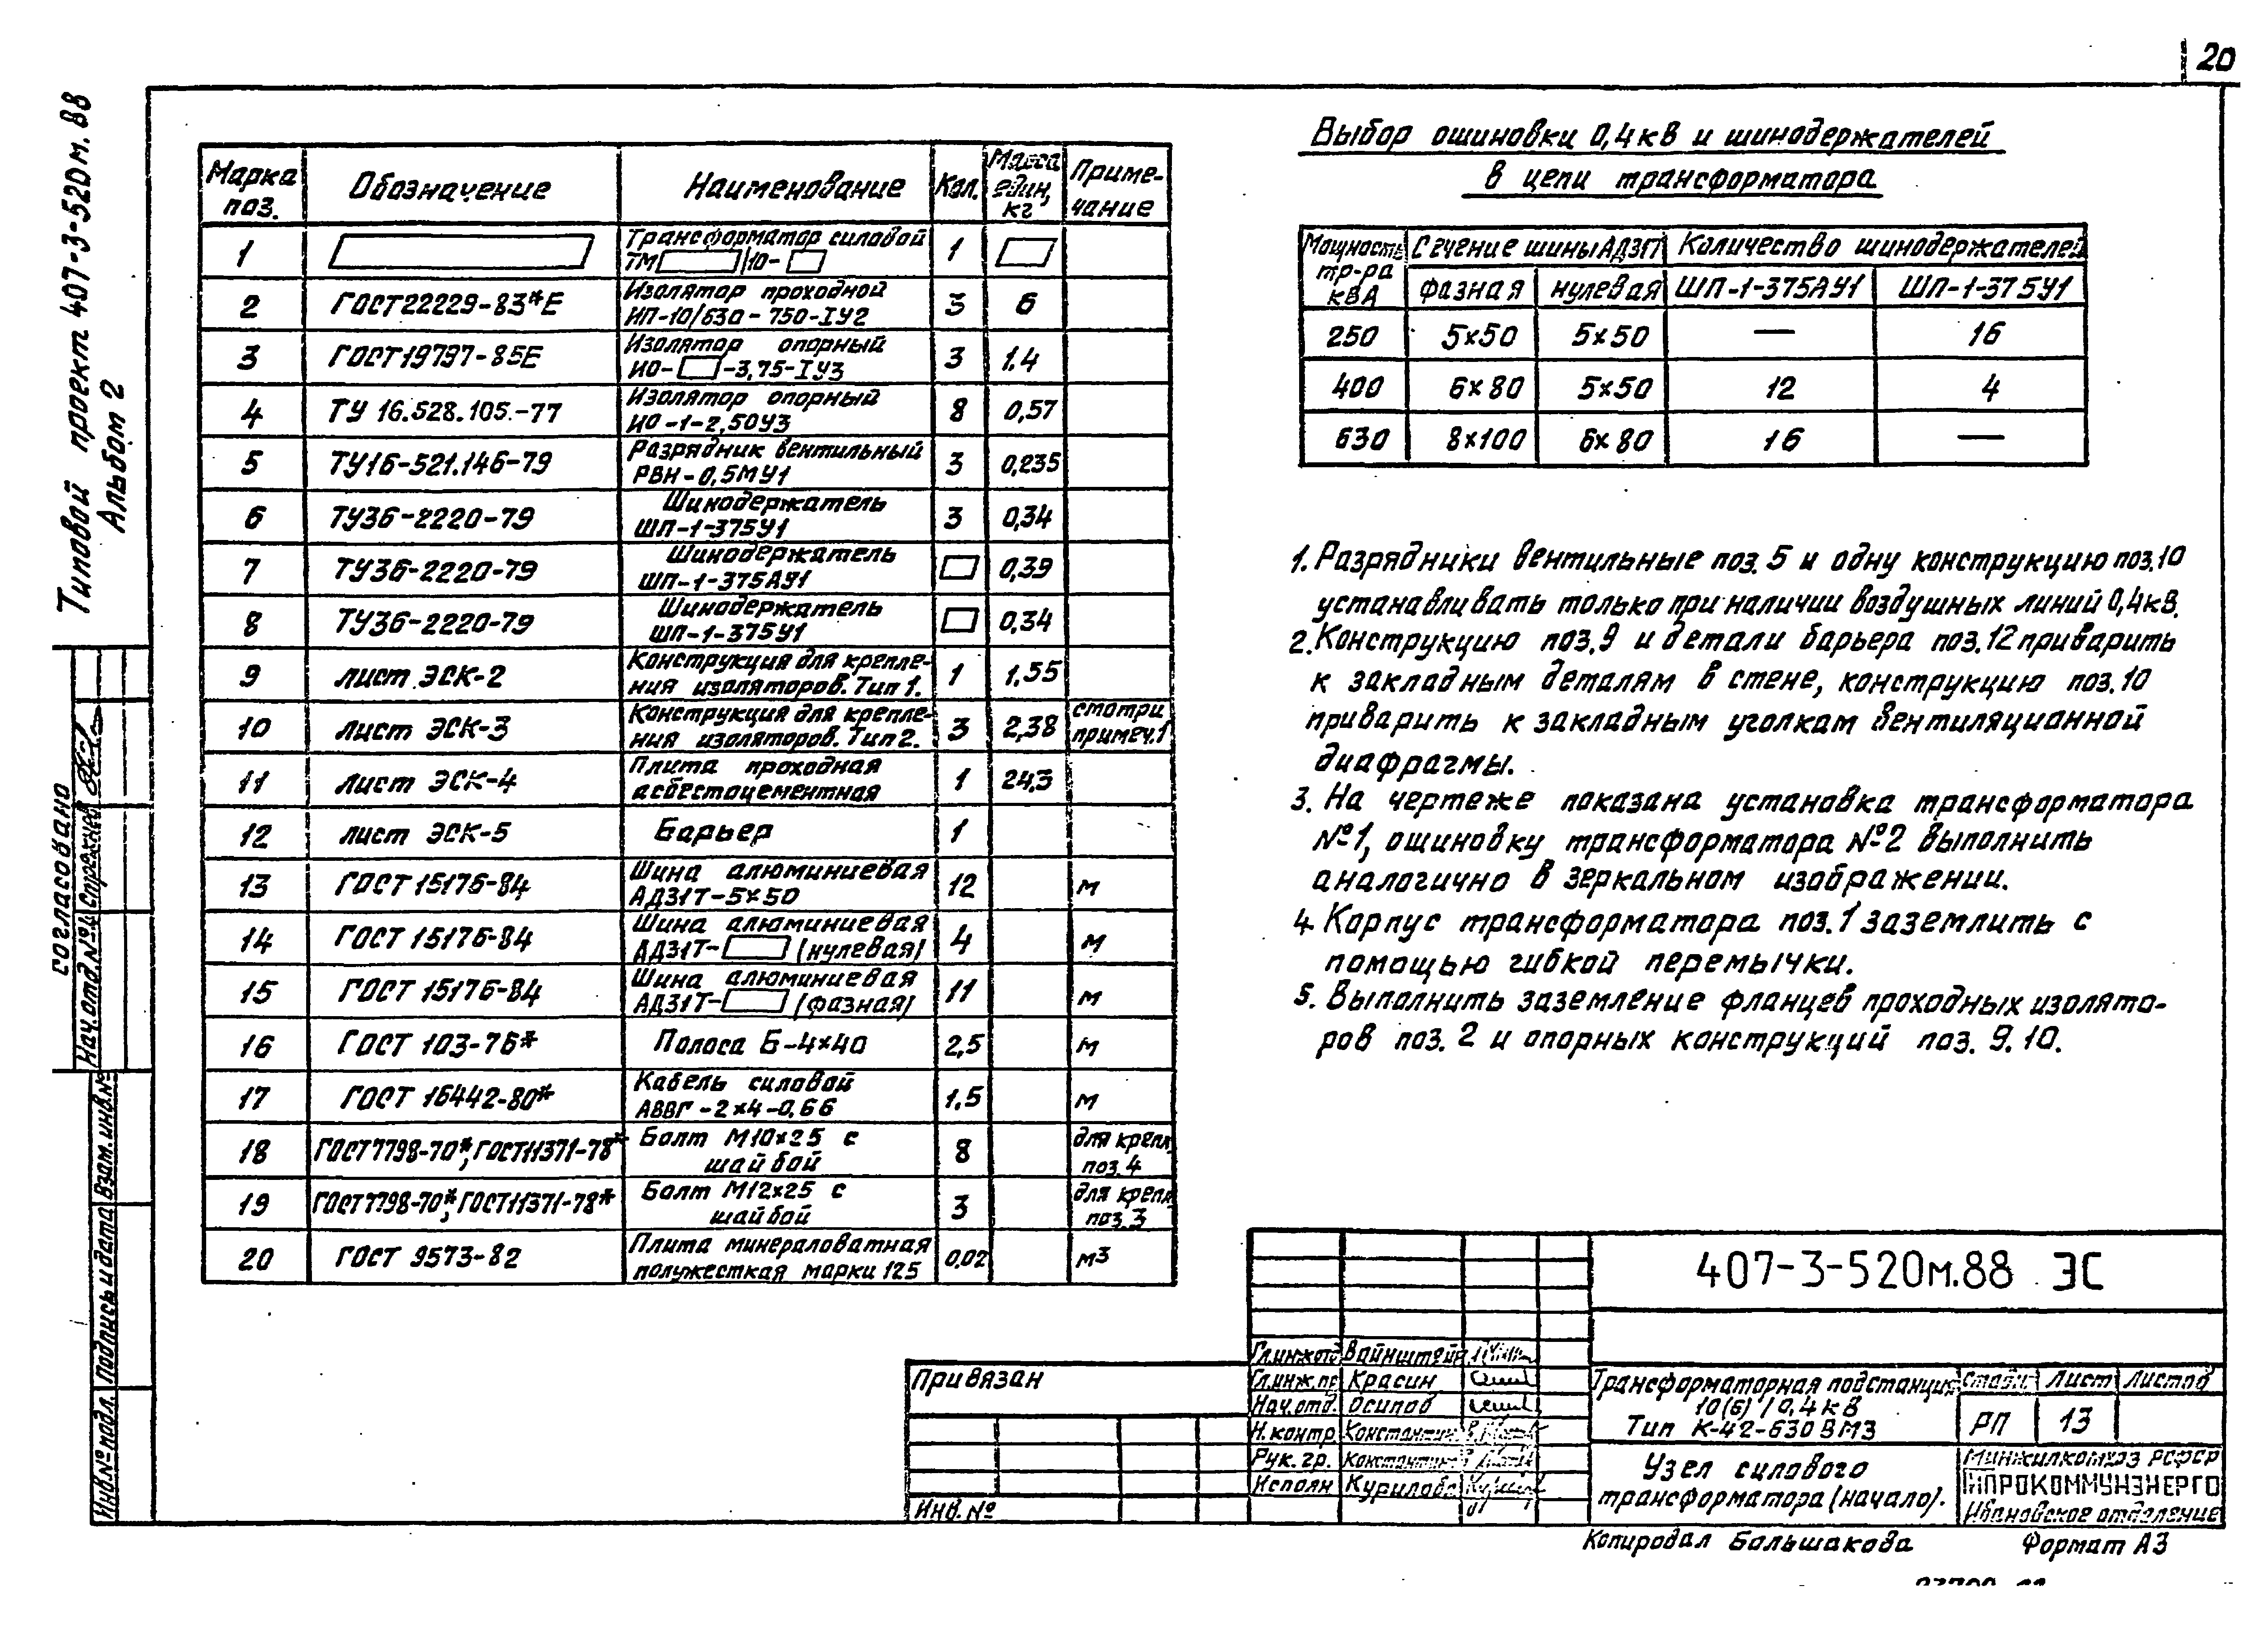 20
Типовой проект 407-3-520м.88
Альбом 2
Марка поз. Обозначение Наименование Кол. Масса един, кг Приме-чание
1 Трансформатор силовой 1
ТМ /10-
2 ГОСТ22229-83*Е Изолятор проходной 3 6
ИП-10/630-750-IУ2
3 ГОСТ19797-85Е Изолятор опорный 3 1,4
ИО- -3,75-IУ3
4 ТУ 16.528.105.-77 Изолятор опорный 8 0,57
ИО-1-2,50У3
5 ТУ16-521.146-79 Разрядник вентильный 3 0,235
РВН-0,5МУ1
6 ТУ36-2220-79 Шинодержатель 3 0,34
ШП-1-375У1
7 ТУ36-2220-79 Шинодержатель 0,39
ШП-1-375АУ1
8 ТУ36-2220-79 Шинодержатель 0,34
ШП-1-375У1
9 лист ЭСК-2 Конструкция для крепле- 1 1.55
ния изоляторов. Тип 1.
10 лист ЭСК-3 Конструкция для крепле- 3 2,38 смотри
ния изоляторов. Тип 2. примеч.1
11 лист ЭСК-4 Плита проходная 1 24,3
асбестоцементная
12 лист ЭСК-5 Барьер 1
13 ГОСТ 15176-84 Шина алюминиевая 12 м
АД31Т-5×50
14 ГОСТ 15176-84 Шина алюминиевая 4 м
АД31Т- (нулевая)
15 ГОСТ 15176-84 Шина алюминиевая 11 м
АД31Т- (фазная)
16 ГОСТ 103-76* Полоса Б-4×40 2,5 м
17 ГОСТ 16442-80* Кабель силовой 1,5 м
АВВГ-2×4-0,66
18 ГОСТ7798-70*, ГОСТ11371-78* Болт М10×25 с 8 для крепл.
шайбой поз.4
19 ГОСТ7798-70*, ГОСТ11371-78* Болт М12×25 с 3 для крепл.
шайбой поз.3
20 ГОСТ 9573-82 Плита минераловатная 0,02 м3
полужесткая марки 125
Выбор ошиновки 0,4кВ и шинодержателей
в цепи трансформатора
Мощность тр-ра кВА Сечение шины АД31Т Количество шинодержателей
фазная нулевая ШП-1-375АУ1 ШП-1-375У1
250 5×50 5×50 — 16
400 6×80 5×50 12 4
630 8×100 6×80 16 —
1. Разрядники вентильные поз. 5 и одну конструкцию поз.10
устанавливать только при наличии воздушных линий 0,4кВ.
2. Конструкцию поз.9 и детали барьера поз.12 приварить
к закладным деталям в стене, конструкцию поз.10
приварить к закладным уголкам вентиляционной
диафрагмы.
3. На чертеже показана установка трансформатора
№1, ошиновку трансформатора №2 выполнить
аналогично в зеркальном изображении.
4. Корпус трансформатора поз.1 заземлить с
помощью гибкой перемычки.
5. Выполнить заземление фланцев проходных изолято-
ров поз. 2 и опорных конструкций поз. 9.10.
согласовано
Нач.отд.№4 Стрехнев
Взам.инв.№
Подпись и дата
Инв.№подл.
Привязан
Инв. №
Гл.инж.отд Вайнштейн
Гл.инж.пр Красин
Нач.отд. Осипов
Н.контр Константин
Рук.гр. Константин
Исполн Курилова
407-3-520м.88 ЭС
Трансформаторная подстанция
10(6)/0,4кВ
Тип К-42-630ВМ3
Стадия Лист Листов
РП 13
Узел силового
трансформатора (начало).
Минжилкомхоз РСФСР
ГИПРОКОММУНЭНЕРГО
Ивановское отделение
Копировал Большакова Формат А3